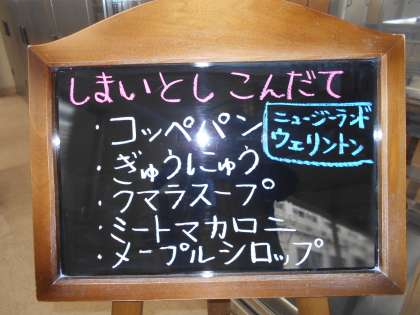 しまいとし こんだて
ニュージーランド
ウェリントン
・コッペパン
・ぎゅうにゅう
・クマラスープ
・ミートマカロニ
・メープルシロップ